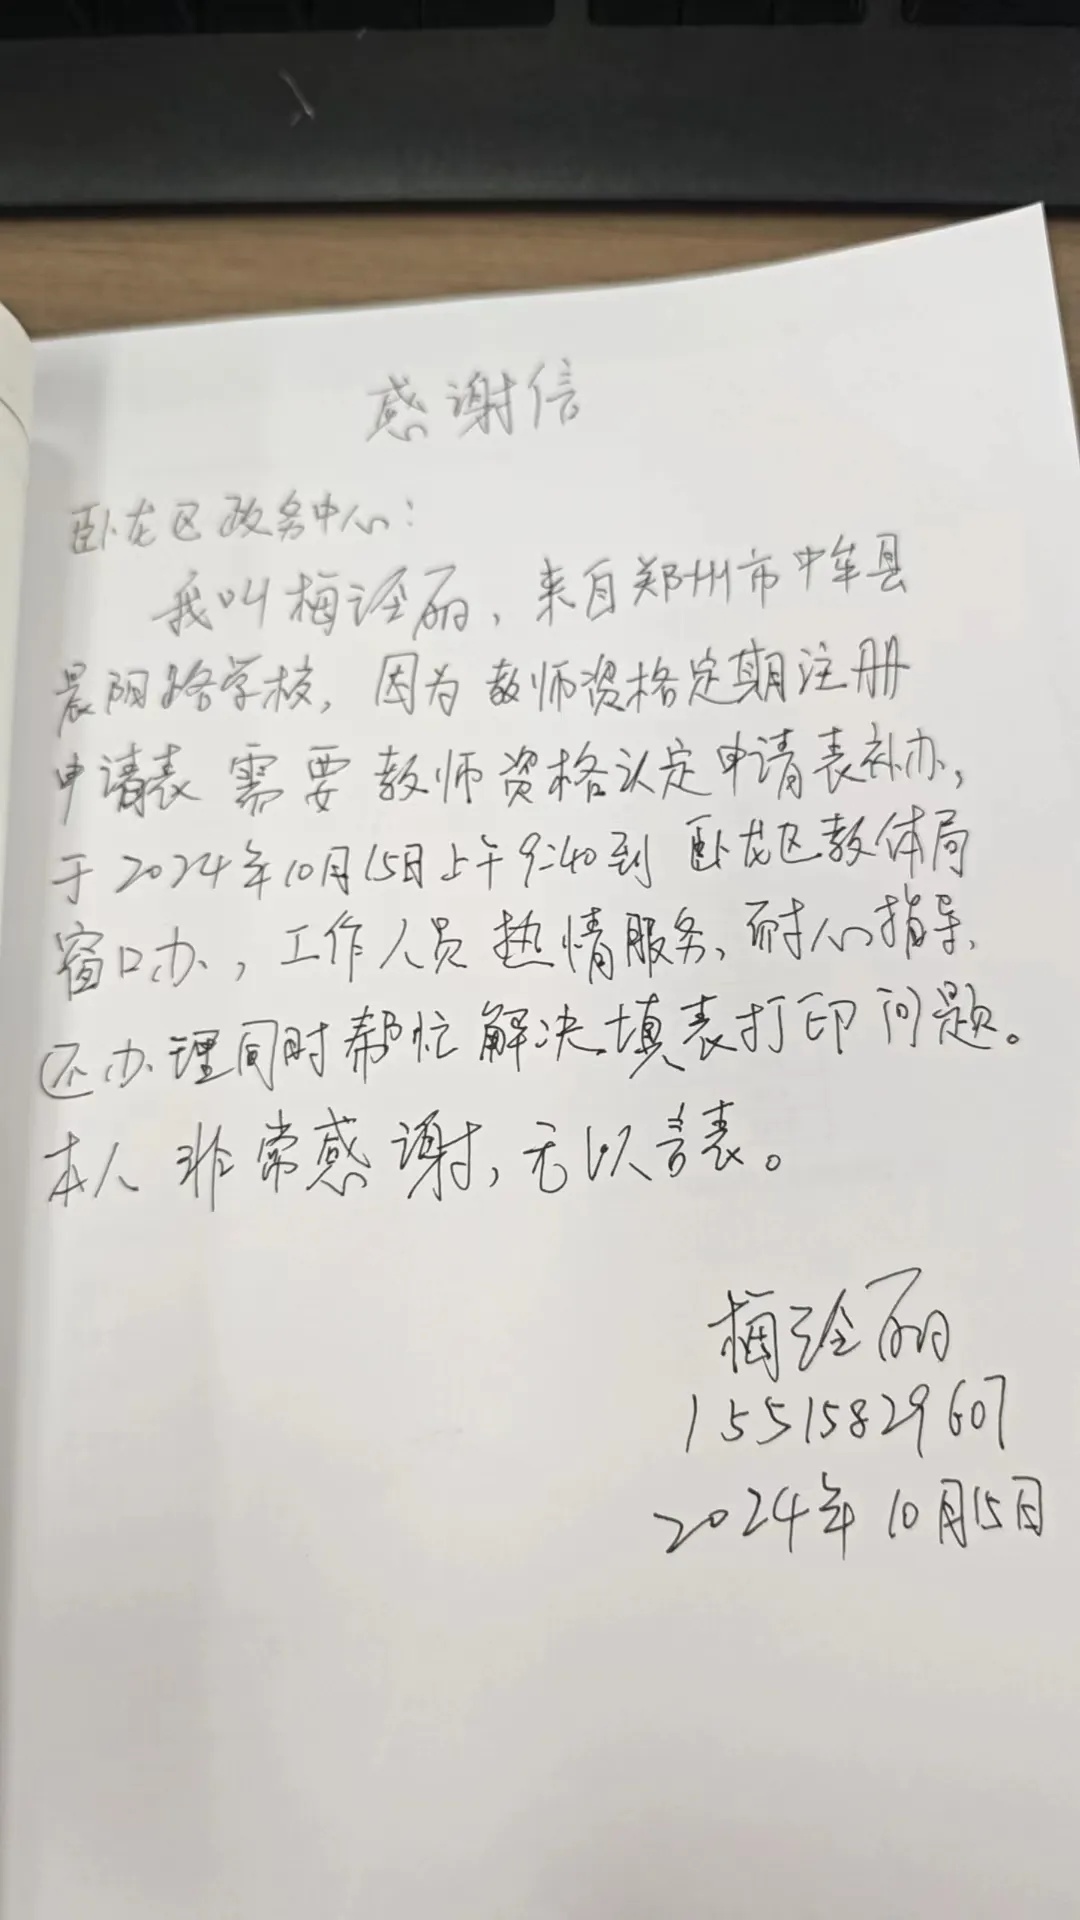 感谢信
卧龙区政务中心:
我叫梅泾丽,来自郑州市中牟县
晨阳路学校,因为教师资格定期注册
申请表需要教师资格认定申请表补办,
于2024年10月15日上午9:40到卧龙区教体局
窗口办,工作人员热情服务,耐心指导,
还办理同时帮忙解决填表打印问题。
本人非常感谢,无以言表。
梅泾丽
15515829607
2024年10月15日